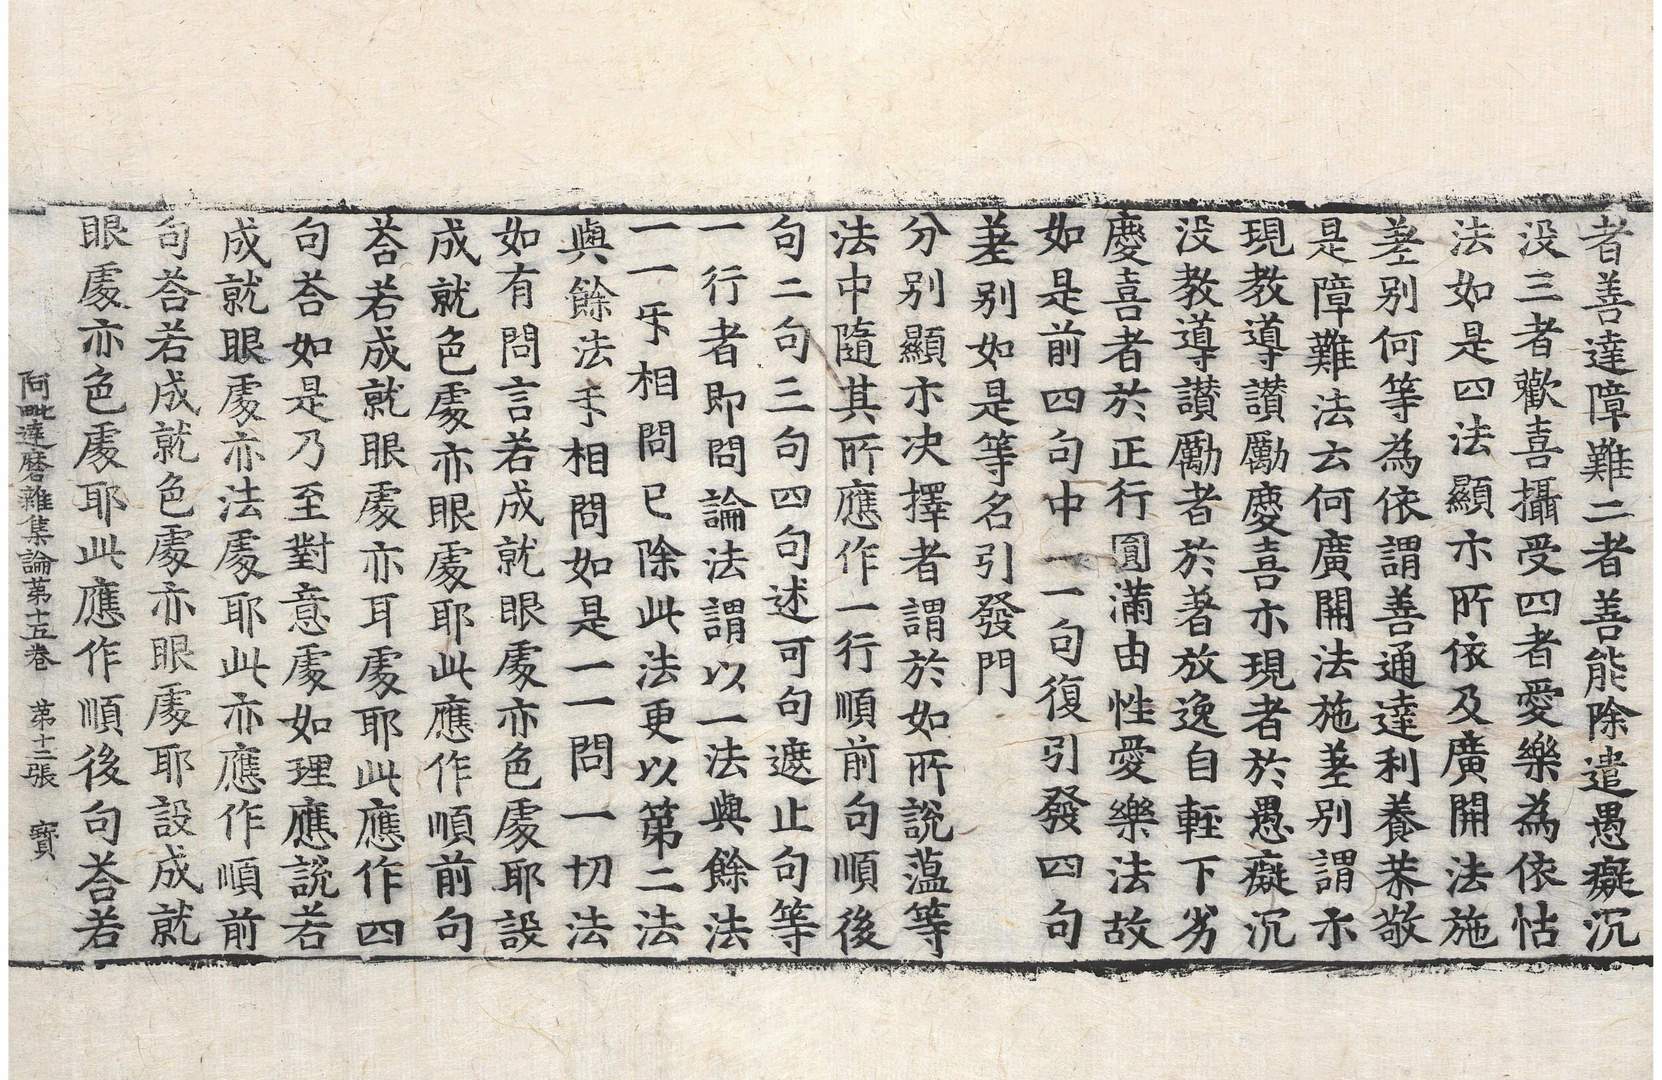 者善達障難二者善能除遣愚癡沉
没三者歡喜攝受四者愛樂為依怙
法如是四法顯示所依及廣開法施
差別何等為依謂善通達利養恭敬
是障難法云何廣開法施差別謂示
現教導讃勵慶喜示現者於愚癡沉
没教導讃勵者於著放逸自輕下劣
慶喜者於正行圓滿由性愛樂法故
如是前四句中一一句復引發四句
差別如是等名引發門
分別顯示决擇者謂於如所說蕰等
法中隨其所應作一行順前句順後
句二句三句四句述可句遮止句等
一行者即問論法謂以一法與餘法
一一乎相問已除此法更以第二法
與餘法乎相問如是一一問一切法
如有問言若成就眼處亦色處耶設
成就色處亦眼處耶此應作順前句
荅若成就眼處亦耳處耶此應作四
句荅如是乃至對意處如理應說若
成就眼處亦法處耶此亦應作順前
句荅若成就色處亦眼處耶設成就
眼處亦色處耶此應作順後句荅若
阿毗達磨雜集論第十五卷 第十二張 寳